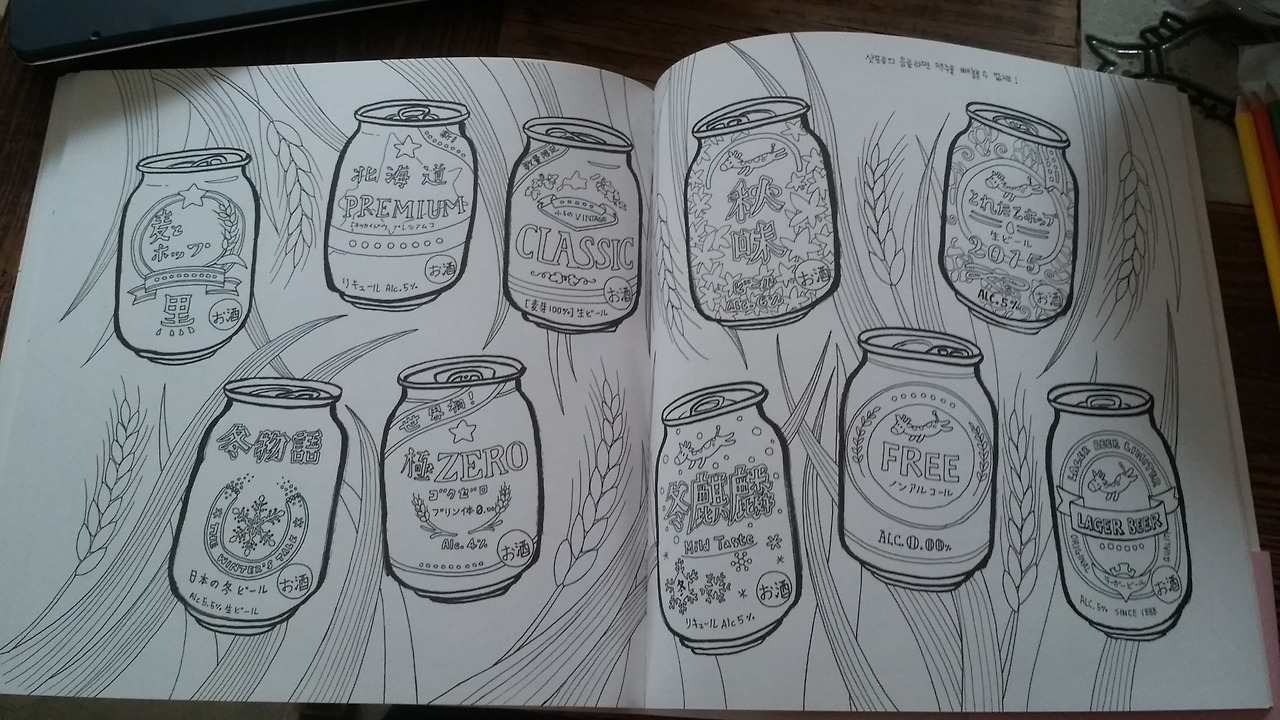 麦と
ホップ
黒
お酒
新!
北海道
PREMIUM
リキュール Alc.5%
お酒
数量限定
VINTAGE
CLASSIC
お酒
[麦芽100%] 生ビール
冬物語
THE WINTER'S TALE
日本の冬ビール
お酒
Alc 5.5% 生ビール
世界初!
極ZERO
ゴクゼロ
プリン体 0.00
Alc. 4%
お酒
삿포로의 음료라면 맥주를 빼놓을 수 없지!
秋
味
ビール
お酒
Alc. 6%
とれたてホップ
生ビール
2015
Alc. 5%
お酒
冬麒麟
Mild Taste
冬
お酒
リキュール Alc 5%
FREE
ノンアルコール
ALC. 0.00%
LAGER BEER
LAGER BEER
ORIGINAL
ラガービール
お酒
ALC. 5% SINCE 1888